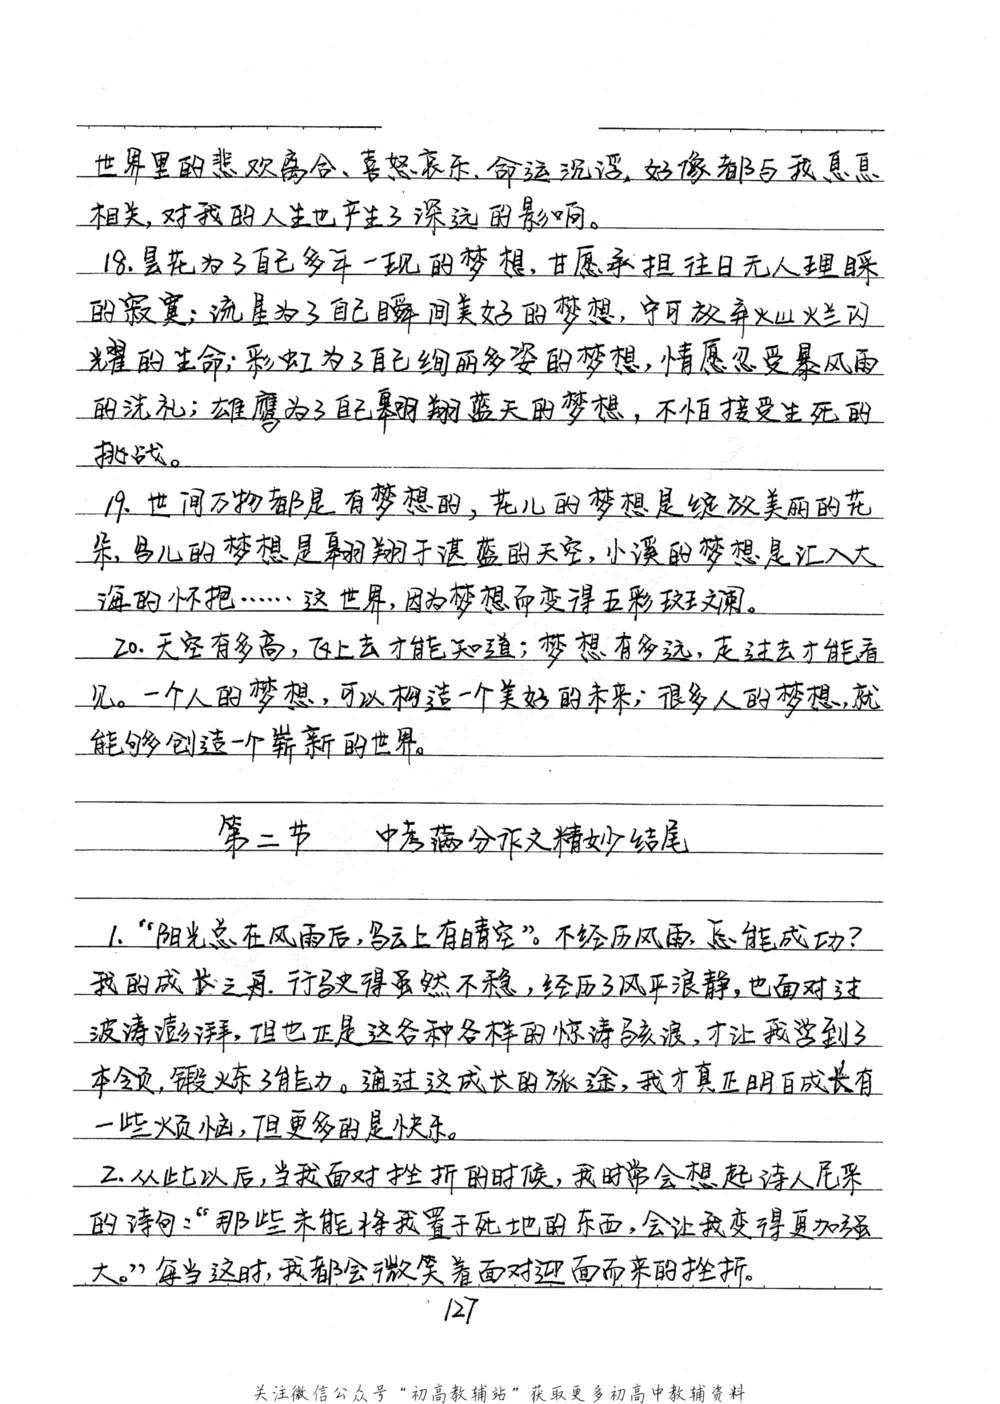 世界里的悲欢离合、喜怒哀乐、命运沉浮，好像都与我息息
相关，对我的人生也产生了深远的影响。
18.昙花为了自己多年一现的梦想，甘愿承担往日无人理睬
的寂寞；流星为了自己瞬间美好的梦想，宁可放弃灿烂闪
耀的生命；彩虹为了自己绚丽多姿的梦想，情愿忍受暴风雨
的洗礼；雄鹰为了自己翱翔蓝天的梦想，不怕接受生死的
挑战。
19.世间万物都是有梦想的，花儿的梦想是绽放美丽的花
朵，鸟儿的梦想是翱翔于湛蓝的天空，小溪的梦想是汇入大
海的怀抱……这世界，因为梦想而变得五彩斑斓。
20.天空有多高，飞上去才能知道；梦想有多远，走过去才能看
见。一个人的梦想，可以构造一个美好的未来；很多人的梦想，就
能够创造一个崭新的世界。
第二节 中考满分作文精妙结尾
1.“阳光总在风雨后，乌云上有晴空”。不经历风雨，怎能成功？
我的成长之舟，行驶得虽然不稳，经历了风平浪静，也面对过
波涛澎湃，但也正是这各种各样的惊涛骇浪，才让我学到了
本领，锻炼了能力。通过这成长的旅途，我才真正明白成长有
一些烦恼，但更多的是快乐。
2.从此以后，当我面对挫折的时候，我时常会想起诗人尼采
的诗句：“那些未能将我置于死地的东西，会让我变得更加强
大。”每当这时，我都会微笑着面对迎面而来的挫折。
127
关注微信公众号“初高教辅站”获取更多初高中教辅资料